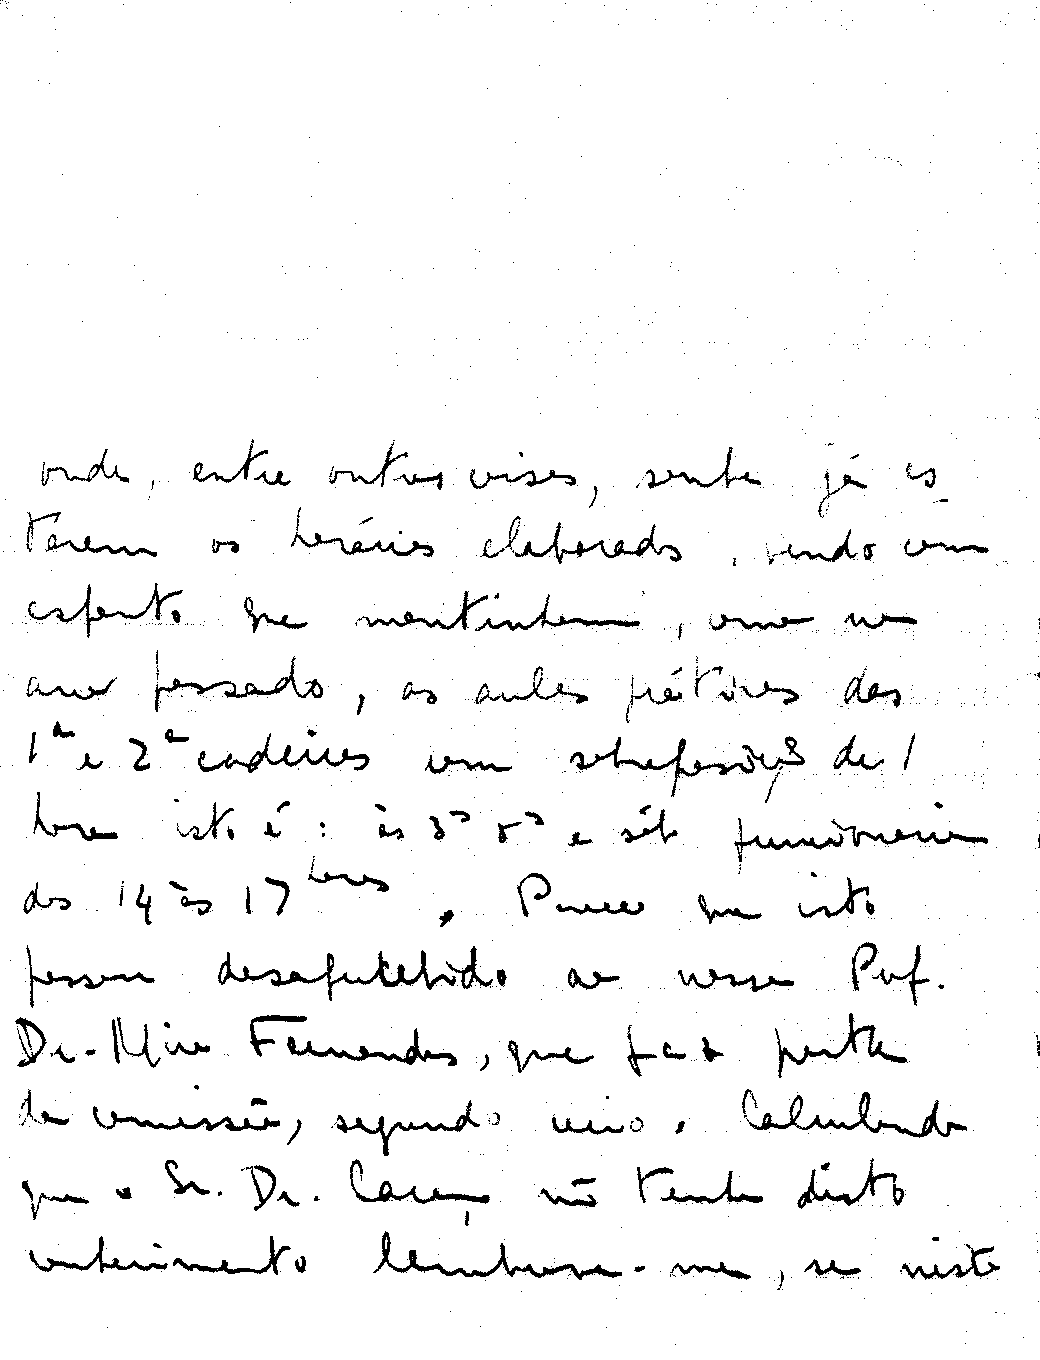 onde, entre outras coisas, soube já es-
tarem os horários elaborados, vendo com
espanto que mantinham, como no
ano passado, as aulas práticas das
1ª e 2ª cadeiras com sobreposição de 1
hora isto é: às 3ªs 5ªs e sáb funcionariam
das 14 às 17 horas. Parece que isto
passou desapercebido ao nosso Prof.
Dr. Mira Fernandes, que faz parte
da comissão, segundo creio. Calculando
que o Sr. Dr. Caraça não tenha disto
conhecimento lembrava-me, se nisto